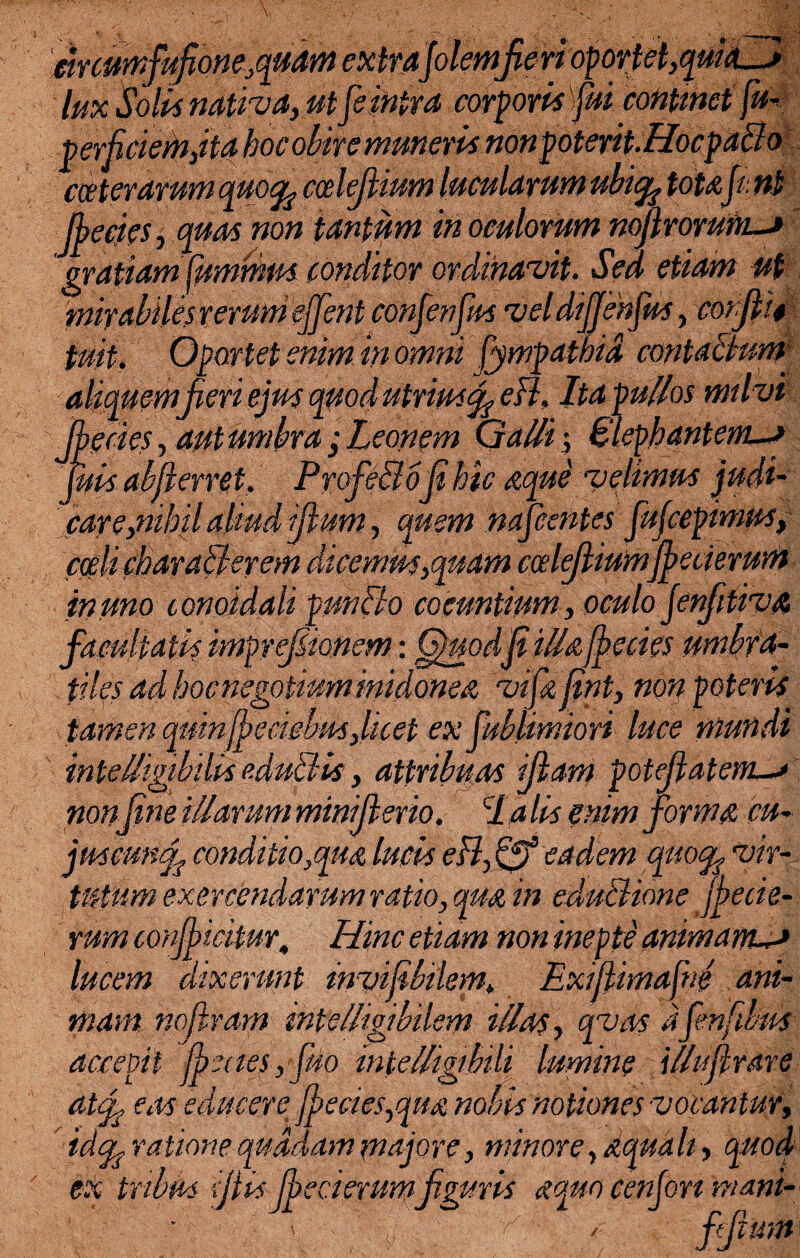 circumfusione,quàm extra solem fieri oportet,quia
lux Solis nativa, ut se intra corporis sui continet su-
perficiem,ita hoc obire muneris non poterit.Hoc pacto
cœterarum quoq; cœlestium lucularum ubiq; totæ sunt
species, quas non tantùm in oculorum nostrorum
gratiam summus conditor ordinavit. Sed etiam ut
mirabiles rerum essent consensus vel dissensus, constit
tuit. Oportet enim in omni sympathiâ contactum
aliquem fieri ejus quod utriusq; est. Ita pullos milvi
species, aut umbra; Leonem Galli; Elephantem
suis absterret. Profectò si hic æquè velimus judi-
care,nihil aliud istum, quem nascentes suscepimus,
cœli characterem dicemus,quam cœlestium specierum
in uno conoidali puncto coeuntium, oculo sensitivæ
facultatis impressionem: Quod si illæ species umbra-
tiles ad hoc negotium inidoneæ visæ sint, non poteris
tamen quin speciebus,licet ex sublimiori luce mundi
intelligibilis eductis, attribuas istam potestatem
non sine illarum ministerio. Talis enim formæ cu-
juscunq; conditio,quæ lucis est,& eadem quoq; vir-
tutum exercendarum ratio, quæ in eductione specie-
rum conspicitur. Hinc etiam non ineptè animam
lucem dixerunt invisibilem. Existimasne ani-
mam nostram intelligibilem illas, qvas à sensibus
accepit species, suo intelligibili lumine illustrare
atq; eas educere species,quæ nobis notiones vocantur,
idq; ratione quâdam majore, minore, æquali, quod
ex tribus istis specierum figuris æquo censori mani-
festum